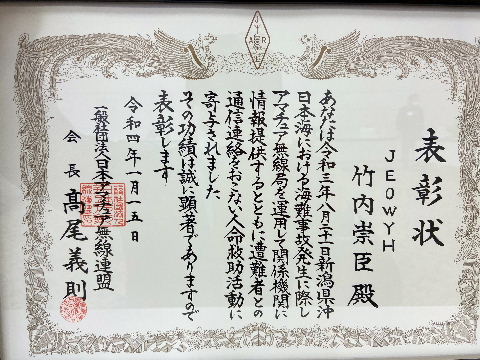 表彰状
JE0WYH
竹内崇臣 殿
あなたは令和三年八月二十一日新潟県沖
日本海における海難事故発生に際し
アマチュア無線局を運用して関係機関に
情報提供するとともに遭難者との
通信連絡をおこない人命救助活動に
寄与されました
その功績は誠に顕著でありますので
表彰します
令和四年一月一五日
一般社団法人日本アマチュア無線連盟
会長 髙尾義則